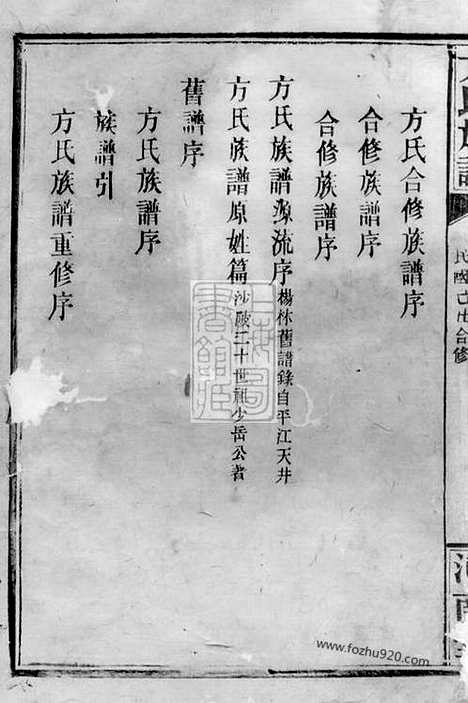 方氏合修族譜序
合修族譜序
合修族譜序
方氏族譜源流序 楊林舊譜錄自平江天井
方氏族譜原姓篇 沙陂二十世祖少岳公者
舊譜序
方氏族譜序
族譜引
方氏族譜重修序
氏族譜
民國己丑合修
上海圖書館藏
www.fozhu920.com